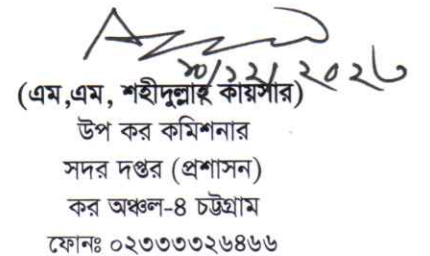 ২০/১২/২০২৩
(এম,এম, শহীদুল্লাহ্ কায়সার)
উপ কর কমিশনার
সদর দপ্তর (প্রশাসন)
কর অঞ্চল-৪ চট্টগ্রাম
ফোনঃ ০২৩৩৩৩২৬৪৬৬